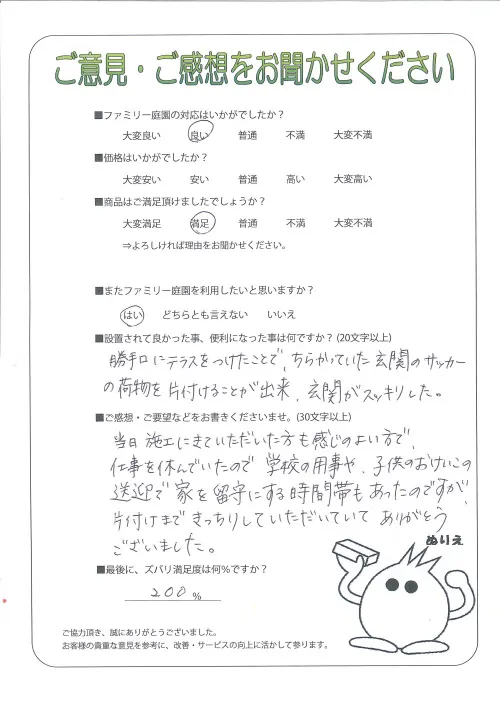 ご意見・ご感想をお聞かせください
■ファミリー庭園の対応はいかがでしたか？
大変良い 良い 普通 不満 大変不満
■価格はいかがでしたか？
大変安い 安い 普通 高い 大変高い
■商品はご満足頂けましたでしょうか？
大変満足 満足 普通 不満 大変不満
⇒よろしければ理由をお聞かせください。
■またファミリー庭園を利用したいと思いますか？
はい どちらとも言えない いいえ
■設置されて良かった事、便利になった事は何ですか？(20文字以上)
勝手口にテラスをつけたことで、ちらかっていた玄関のサッカー
の荷物を片付けることが出来、玄関がスッキリした。
■ご感想・ご要望などをお書きくださいませ。(30文字以上)
当日施工にきていただいた方も感じのよい方で、
仕事を休んでいたので学校の用事や、子供のおけいこの
送迎で家を留守にする時間帯もあったのですが、
片付けまできっちりしていただいていてありがとう
ございました。
ぬりえ
■最後に、ズバリ満足度は何％ですか？
200 %
ご協力頂き、誠にありがとうございました。
お客様の貴重な意見を参考に、改善・サービスの向上に活かして参ります。